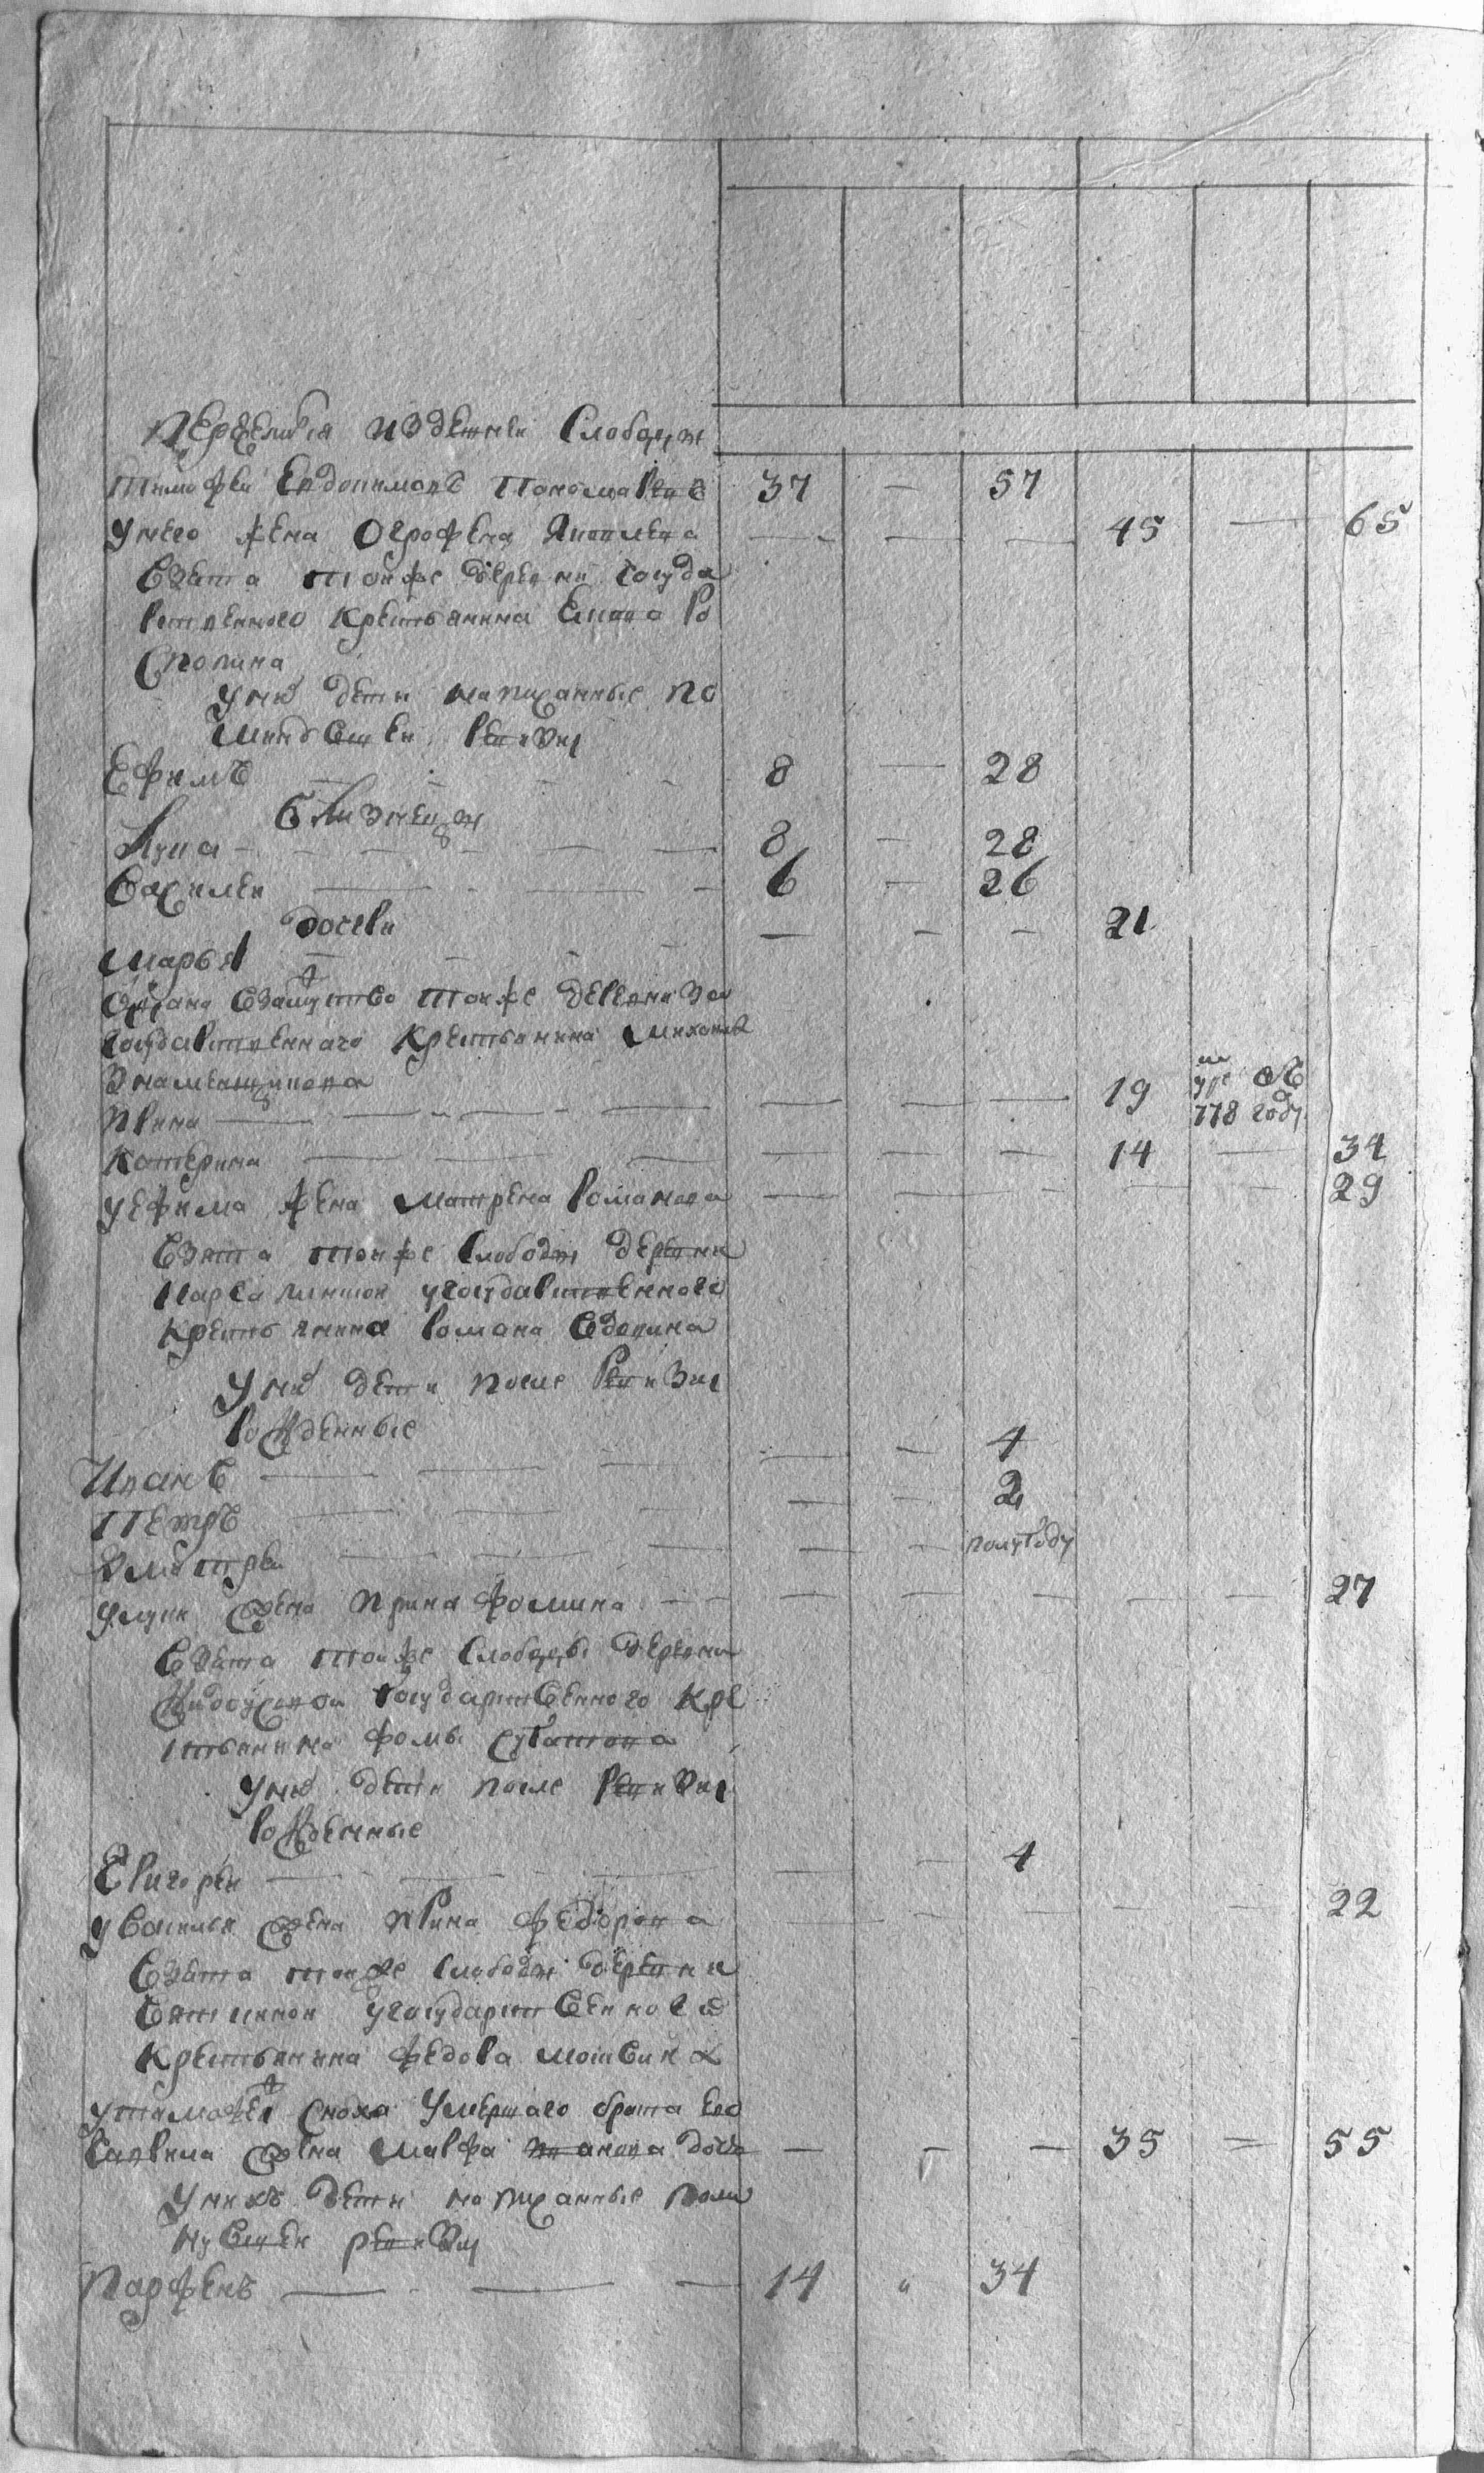 Переведенъ издешней слободы
Тимофеи Евдокимовъ Пономаревъ 37 — 57
У него жена Огрофена Яковлева — — — 45 — 65
Взята тоиже деревни госуда
рственного крестьянина Якова
У них дети написанные по
последней ревизии
Ефимъ 8 — 28
близнецы
Лука — 8 — 28
Василеи 6 — 26
дочери
Марья — — — 21
выдана в замужство тоиже деревни за
государственнаго крестьянина Михаила
Знаменщикова
Ирина — — — 19 778 году
Катерина — — — 14 — 34
у Ефима жена Матрена Романова — — — — — 29
Взята тоиже слободы деревни
у государственного
крестьянина Романа
У них дети после ревизии
рожденные
Иванъ — — 4
Петръ — — 2
Дмитреи — — полугоду
у Луки жена Ирина Фомина — — — — — 27
Взята тоиже слободы деревни
государственного кре
стьянина Фомы
У них дети после ревизии
рожденные
Григореи — — 4
у Василья жена Ирина Федорова — — — — — 22
Взята тоиже слободы деревни
у государственного
крестьянина Федора
у Тимофея сноха умершаго брата ево
жена Марфа Иванова дочь — — — 35 — 55
У них дети написанные в
ревизии
Парфенъ 14 „ 34